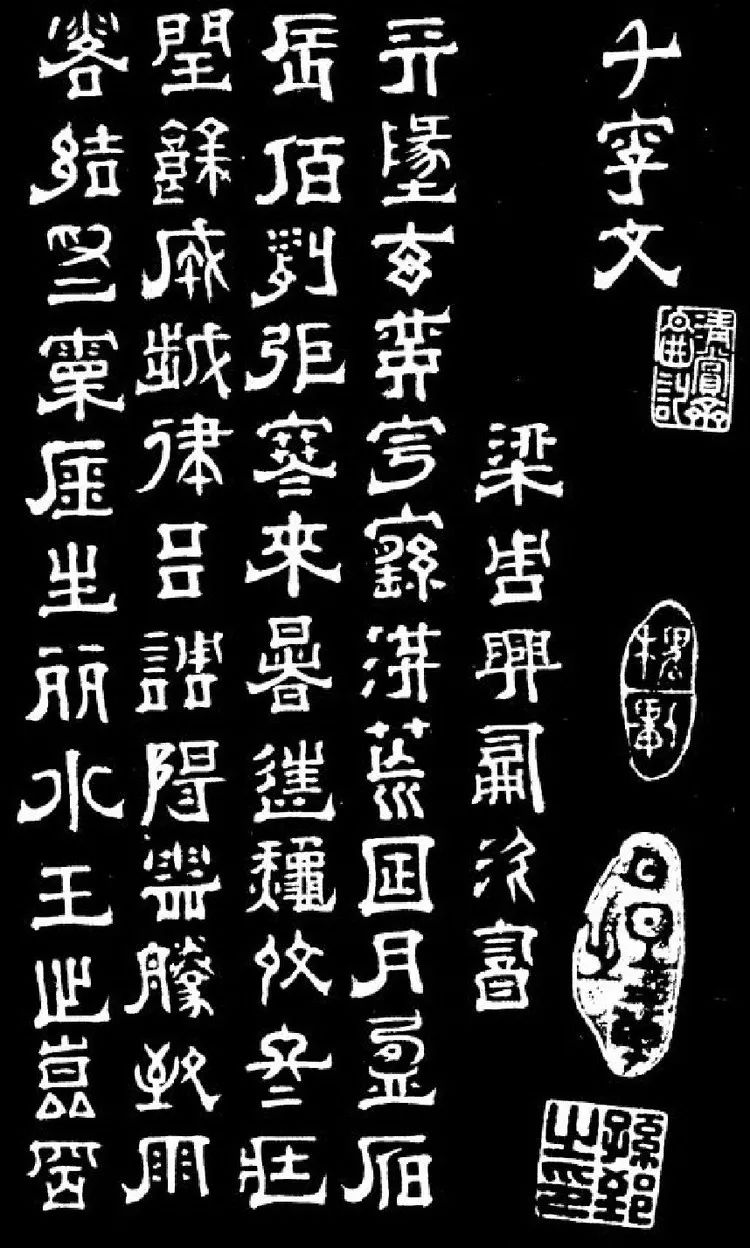 千字文
梁周興嗣次韻
天地玄黃宇宙洪荒日月盈昃
辰宿列張寒來暑往秋收冬藏
閏餘成歲律呂調陽雲騰致雨
露結為霜金生麗水玉出崑岡